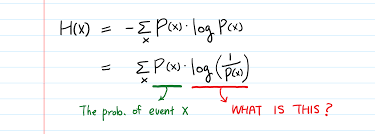 H(x) = -∑ₓ P(x)·log P(x)
= ∑ₓ P(x)·log(1/P(x))
The prob. of event X WHAT IS THIS?